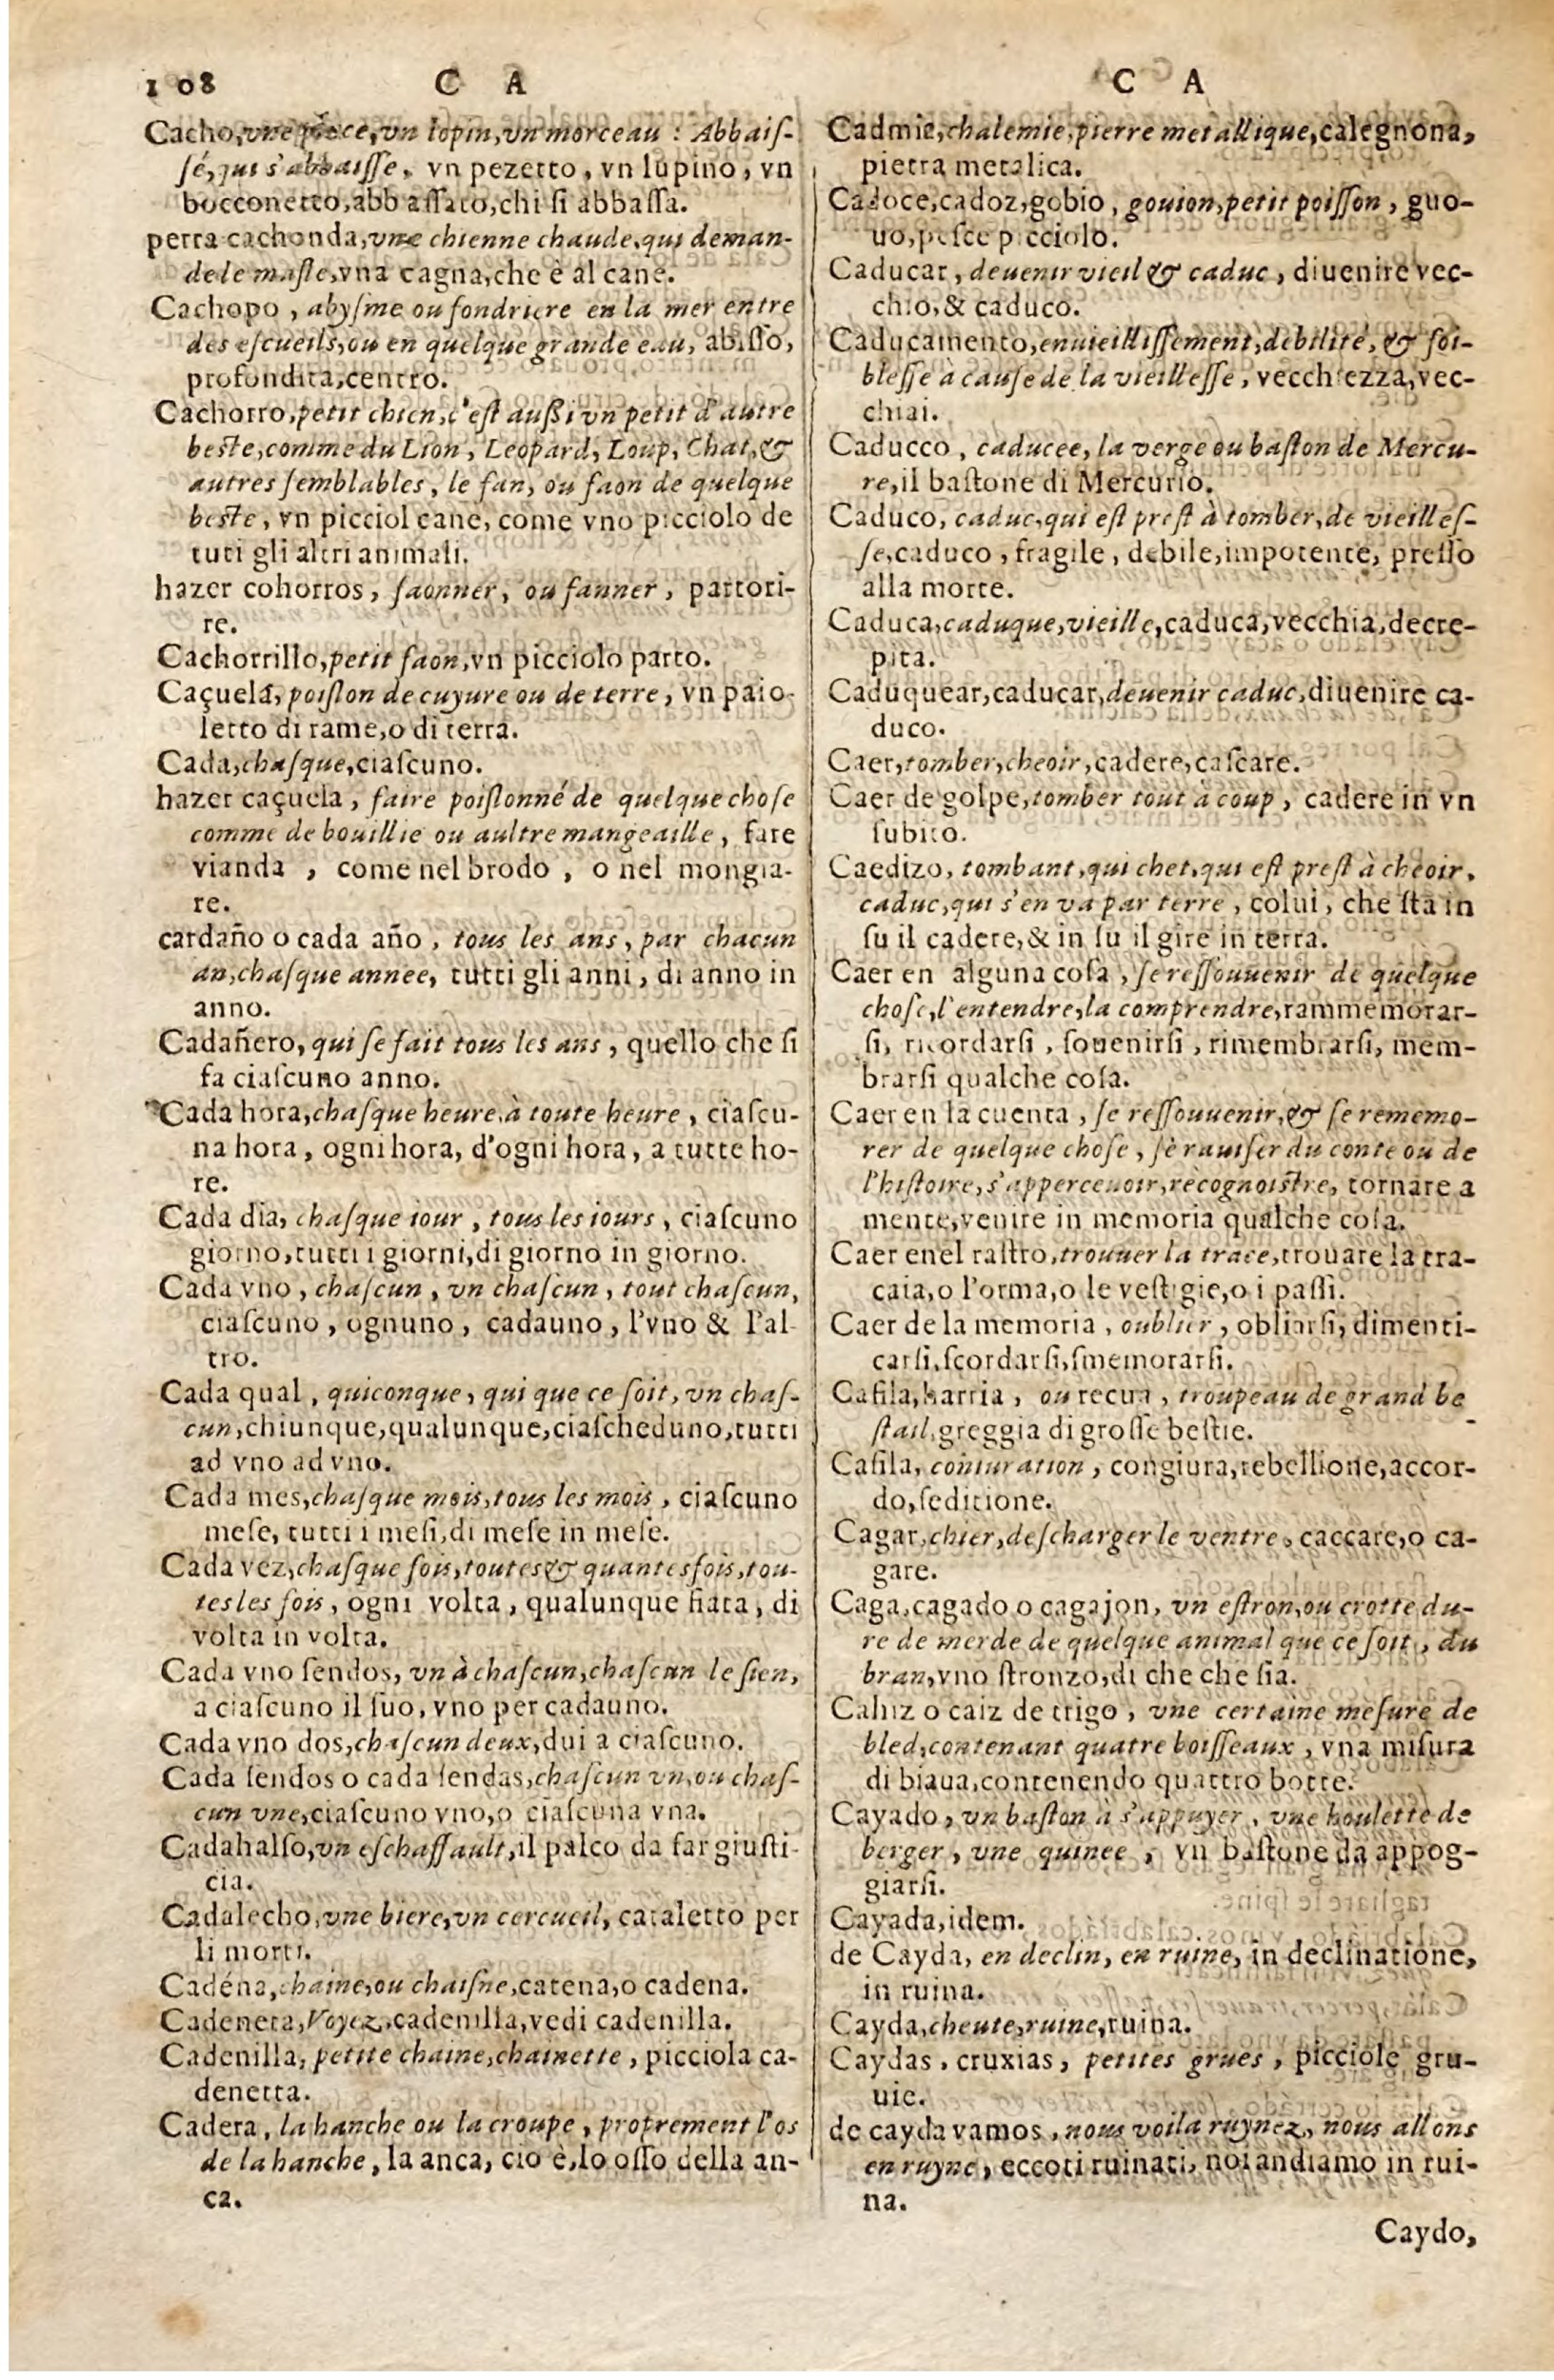 108 C A
Cacho, vne piece, vn lopin, vn morceau : Abbaiſ-
ſé, qui s'abbaiſſe, vn pezetto, vn lupino, vn
bocconetto, abbaſſato, chi ſi abbaſſa.
perra cachonda, vne chienne chaude, qui deman-
de le maſle, vna cagna, che è al cane.
Cachopo, abyſme ou fondriere en la mer entre
des eſcueils, ou en quelque grande eau, abiſſo,
profondita, centro.
Cachorro, petit chien, c'eſt außi vn petit d'autre
beſte, comme du Lion, Leopard, Loup, Chat, &
autres ſemblables, le fan, ou faon de quelque
beſte, vn picciol cane, come vno picciolo de
tuti gli altri animali.
hazer cohorros, faonner, ou fanner, partori-
re.
Cachorrillo, petit faon, vn picciolo parto.
Caçuela, poiſlon de cuyure ou de terre, vn paio-
letto di rame, o di terra.
Cada, chaſque, ciaſcuno.
hazer caçuela, faire poiſlonné de quelque choſe
comme de bouillie ou aultre mangeaille, fare
vianda, come nel brodo, o nel mongia-
re.
cardaño o cada año, tous les ans, par chacun
an, chaſque annee, tutti gli anni, di anno in
anno.
Cadañero, qui ſe fait tous les ans, quello che ſi
fa ciaſcuno anno.
Cada hora, chaſque heure, à toute heure, ciaſcu-
na hora, ogni hora, d'ogni hora, a tutte ho-
re.
Cada dia, chaſque iour, tous les iours, ciaſcuno
giorno, tutti i giorni, di giorno in giorno.
Cada vno, chaſcun, vn chaſcun, tout chaſcun,
ciaſcuno, ognuno, cadauno, l'vno & l'al-
tro.
Cada qual, quiconque, qui que ce ſoit, vn chaſ-
cun, chiunque, qualunque, ciaſcheduno, tutti
ad vno ad vno.
Cada mes, chaſque mois, tous les mois, ciaſcuno
meſe, tutti i meſi, di meſe in meſe.
Cada vez, chaſque fois, toutes & quantes fois, tou-
tes les fois, ogni volta, qualunque fiata, di
volta in volta.
Cada vno ſendos, vn à chaſcun, chaſcun le ſien,
a ciaſcuno il ſuo, vno per cadauno.
Cada vno dos, chaſcun deux, dui a ciaſcuno.
Cada ſendos o cada ſendas, chaſcun vn, ou chaſ-
cun vne, ciaſcuno vno, o ciaſcuna vna.
Cadahalſo, vn eſchaffault, il palco da far giuſti-
cia.
Cadalecho, vne biere, vn cercueil, cataletto per
li morti.
Cadéna, chaine, ou chaiſne, catena, o cadena.
Cadeneta, Voyez, cadenilla, vedi cadenilla.
Cadenilla, petite chaine, chainette, picciola ca-
denetta.
Cadera, la hanche ou la croupe, proprement l'os
de la hanche, la anca, cio è, lo oſſo della an-
ca.
C A
Cadmie, chalemie, pierre metallique, calegnona,
pietra metalica.
Cadoce, cadoz, gobio, gouion, petit poiſſon, guo-
uo, peſce picciolo.
Caducar, deuenir vieil & caduc, diuenire vec-
chio, & caduco.
Caducamento, enuieilliſſement, debilité, & foi-
bleſſe à cauſe de la vieilleſſe, vecchiezza, vec-
chiai.
Caducco, caducee, la verge ou baſton de Mercu-
re, il baſtone di Mercurio.
Caduco, caduc, qui eſt preſt à tomber, de vieilleſ-
ſe, caduco, fragile, debile, impotente, preſſo
alla morte.
Caduca, caduque, vieille, caduca, vecchia, decre-
pita.
Caduquear, caducar, deuenir caduc, diuenire ca-
duco.
Caer, tomber, cheoir, cadere, caſcare.
Caer de golpe, tomber tout à coup, cadere in vn
ſubito.
Caedizo, tombant, qui chet, qui eſt preſt à cheoir,
caduc, qui s'en va par terre, colui, che ſta in
ſu il cadere, & in ſu il gire in terra.
Caer en alguna coſa, ſe reſſouuenir de quelque
choſe, l'entendre, la comprendre, rammemorar-
ſi, ricordarſi, ſouenirſi, rimembrarſi, mem-
brarſi qualche coſa.
Caer en la cuenta, ſe reſſouuenir, & ſe rememo-
rer de quelque choſe, ſe rauiſer du conte ou de
l'hiſtoire, s'apperceuoir, recognoiſtre, tornare a
mente, venire in memoria qualche coſa.
Caer en el raſtro, trouuer la trace, trouare la tra-
caia, o l'orma, o le veſtigie, o i paſſi.
Caer de la memoria, oublier, obliarſi, dimenti-
carſi, ſcordarſi, ſmemorarſi.
Cafila, harria, ou recua, troupeau de grand be-
ſtail, greggia di groſſe beſtie.
Cafila, coniuration, congiura, rebellione, accor-
do, ſeditione.
Cagar, chier, deſcharger le ventre, caccare, o ca-
gare.
Caga, cagado o cagajon, vn eſtron, ou crotte du-
re de merde de quelque animal que ce ſoit, du
bran, vno ſtronzo, di che che ſia.
Cahiz o caiz de trigo, vne certaine meſure de
bled, contenant quatre boiſſeaux, vna miſura
di biaua, contenendo quattro botte.
Cayado, vn baſton à s'appuyer, vne houlette de
berger, vne quinee, vn baſtone da appog-
giarſi.
Cayada, idem.
de Cayda, en declin, en ruine, in declinatione,
in ruina.
Cayda, cheute, ruine, ruina.
Caydas, cruxias, petites grues, picciole gru-
uie.
de cayda vamos, nous voila ruynez, nous allons
en ruyne, eccoti ruinati, noi andiamo in rui-
na.
Caydo,